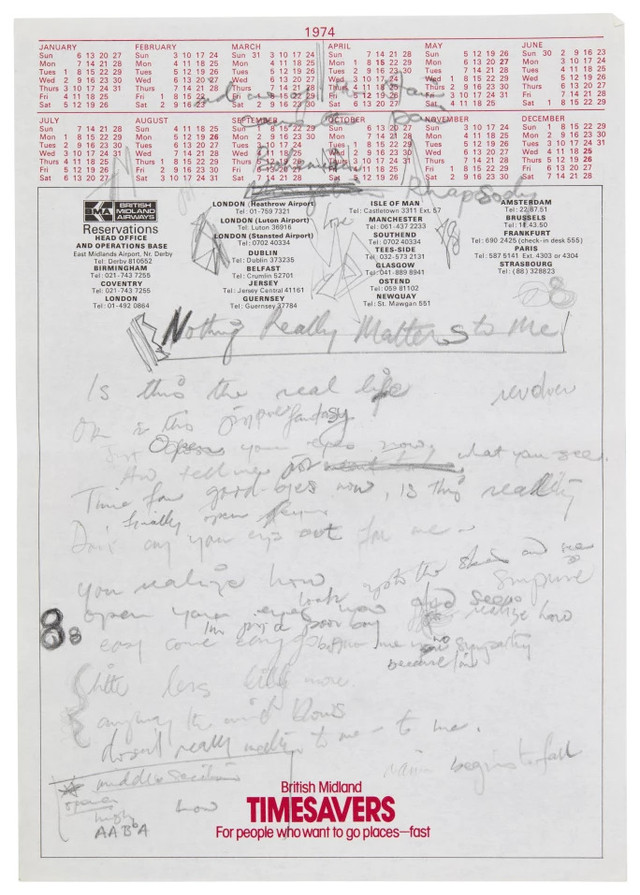 1974
JANUARY FEBRUARY MARCH APRIL MAY JUNE
Sun 6 13 20 27 Sun 3 10 17 24 Sun 31 3 10 17 24 Sun 7 14 21 28 Sun 5 12 19 26 Sun 30 2 9 16 23
Mon 7 14 21 28 Mon 4 11 18 25 Mon 4 11 18 25 Mon 1 8 15 22 29 Mon 6 13 20 27 Mon 3 10 17 24
Tues 1 8 15 22 29 Tues 5 12 19 26 Tues 5 12 19 26 Tues 2 9 16 23 30 Tues 7 14 21 28 Tues 4 11 18 25
Wed 2 9 16 23 30 Wed 6 13 20 27 Wed 6 13 20 27 Wed 3 10 17 24 Wed 1 8 15 22 29 Wed 5 12 19 26
Thurs 3 10 17 24 31 Thurs 7 14 21 28 Thurs 7 14 21 28 Thurs 4 11 18 25 Thurs 2 9 16 23 30 Thurs 6 13 20 27
Fri 4 11 18 25 Fri 1 8 15 22 Fri 1 8 15 22 29 Fri 5 12 19 26 Fri 3 10 17 24 31 Fri 7 14 21 28
Sat 5 12 19 26 Sat 2 9 16 23 Sat 2 9 16 23 30 Sat 6 13 20 27 Sat 4 11 18 25 Sat 1 8 15 22 29
JULY AUGUST SEPTEMBER OCTOBER NOVEMBER DECEMBER
Sun 7 14 21 28 Sun 4 11 18 25 Sun 1 8 15 22 29 Sun 6 13 20 27 Sun 3 10 17 24 Sun 1 8 15 22 29
Mon 1 8 15 22 29 Mon 5 12 19 26 Mon 2 9 16 23 30 Mon 7 14 21 28 Mon 4 11 18 25 Mon 2 9 16 23 30
Tues 2 9 16 23 30 Tues 6 13 20 27 Tues 3 10 17 24 Tues 1 8 15 22 29 Tues 5 12 19 26 Tues 3 10 17 24 31
Wed 3 10 17 24 31 Wed 7 14 21 28 Wed 4 11 18 25 Wed 2 9 16 23 30 Wed 6 13 20 27 Wed 4 11 18 25
Thurs 4 11 18 25 Thurs 1 8 15 22 29 Thurs 5 12 19 26 Thurs 3 10 17 24 31 Thurs 7 14 21 28 Thurs 5 12 19 26
Fri 5 12 19 26 Fri 2 9 16 23 30 Fri 6 13 20 27 Fri 4 11 18 25 Fri 1 8 15 22 29 Fri 6 13 20 27
Sat 6 13 20 27 Sat 3 10 17 24 31 Sat 7 14 21 28 Sat 5 12 19 26 Sat 2 9 16 23 30 Sat 7 14 21 28
Bohemian
Rhapsody
BMA BRITISH MIDLAND AIRWAYS
Reservations
HEAD OFFICE
AND OPERATIONS BASE
East Midlands Airport, Nr. Derby
Tel: Derby 810552
BIRMINGHAM
Tel: 021-743 7255
COVENTRY
Tel: 021-743 7255
LONDON
Tel: 01-492 0864
LONDON (Heathrow Airport)
Tel: 01-759 7321
LONDON (Luton Airport)
Tel: Luton 36916
LONDON (Stansted Airport)
Tel: 0702 40334
DUBLIN
Tel: Dublin 373235
BELFAST
Tel: Crumlin 52701
JERSEY
Tel: Jersey Central 41161
GUERNSEY
Tel: Guernsey 37784
love
ISLE OF MAN
Tel: Castletown 3311 Ext. 57
MANCHESTER
Tel: 061-437 2233
SOUTHEND
Tel: 0702 40334
TEES-SIDE
Tel: 032-573 2131
GLASGOW
Tel: 041-889 8941
OSTEND
Tel: 059 81102
NEWQUAY
Tel: St. Mawgan 551
AMSTERDAM
Tel: 22.67.51
BRUSSELS
Tel: 18.43.50
FRANKFURT
Tel: 690 2425 (check-in desk 555)
PARIS
Tel: 587 5141 Ext. 4303 or 4304
STRASBOURG
Tel: (88) 328823
Nothing Really Matters to Me
Is this the real life revolver
Or is this just fantasy
Just Open your eyes now, what you see
Time for good-byes now, is this reality
finally open
Don't cry your eyes out for me
look up to the skies and see
you realize how
open your eyes now realize how
I'm just a poor boy no
easy come easy go give me sympathy
because I'm
little less little more
anyway the wind blows
doesn't really matter to me - to me.
middle section rain begins to fall
opera
high how
AABbA
8 8
British Midland
TIMESAVERS
For people who want to go places—fast